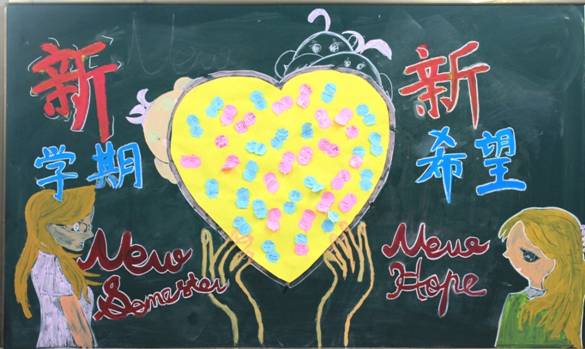 新
学期
New
Semester
新
希望
New
Hope